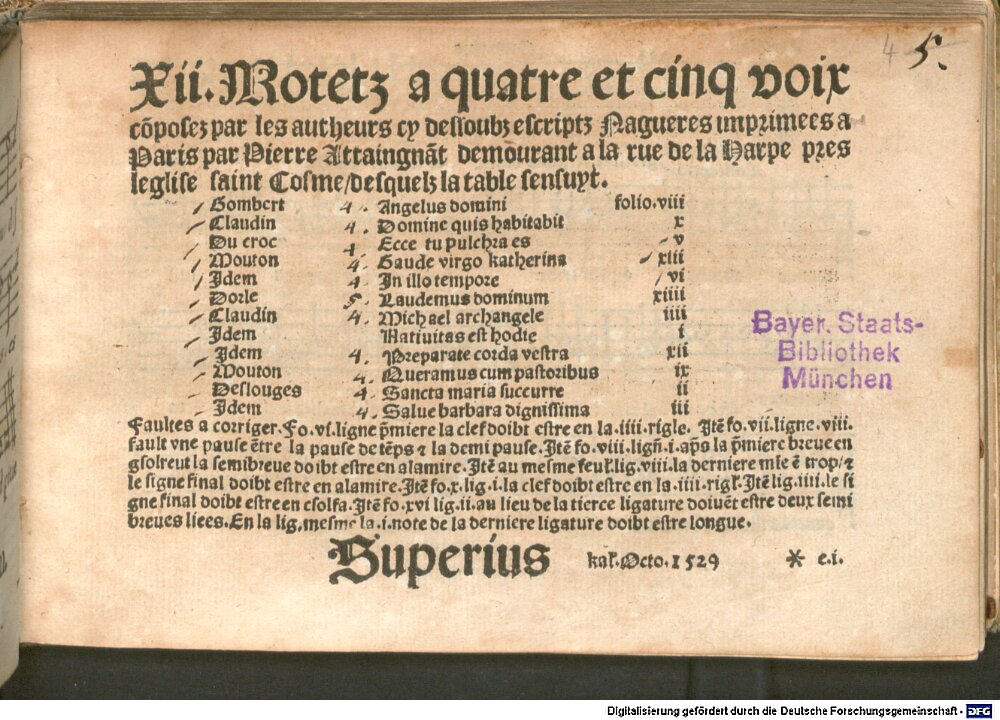 4 5.
Xii. Motetz a quatre et cinq voix
cōposez par les autheurs cy dessoubz escriptz Nagueres imprimees a
Paris par Pierre Attaingnāt demourant a la rue de la Harpe pres
leglise saint Cosme/desquelz la table sensuyt.
Gombert 4. Angelus domini folio.viii
Claudin 4. Domine quis habitabit x
Du croc 4. Ecce tu pulchra es v
Mouton 4. Gaude virgo katherina xiii
Idem 4. In illo tempore vi
Dorle 5. Laudemus dominum xiiii
Claudin 4. Michael archangele iiii
Idem Nativitas est hodie i
Idem 4. Preparate corda vestra xii
Mouton 4. Queramus cum pastoribus ix
Deslouges 4. Sancta maria succurre ii
Idem 4. Salue barbara dignissima iii
Faultes a corriger. Fo.vi.ligne p̄miere la clef doibt estre en la.iiii.rigle. Itē fo.vii.ligne.viii.
fault vne pause ētre la pause de tēps ⁊ la demi pause. Itē fo.viii.lign̄.i.ap̄s la p̄miere breue en
gsolreut la semibreue doibt estre en alamire. Itē au mesme feul.lig.viii.la derniere mīe ē trop/⁊
le signe final doibt estre en alamire. Itē fo.x.lig.i.la clef doibt estre en la.iiii.rigl. Itē lig.iiii.le si
gne final doibt estre en csolfa. Itē fo.xvi lig.ii.au lieu de la tierce ligature doiuēt estre deux semi
breues liees. En la lig.mesme la.i.note de la derniere ligature doibt estre longue.
Superius kal.Octo.1529 * e.i.
Bayer. Staats-
Bibliothek
München
Digitalisierung gefördert durch die Deutsche Forschungsgemeinschaft - DFG